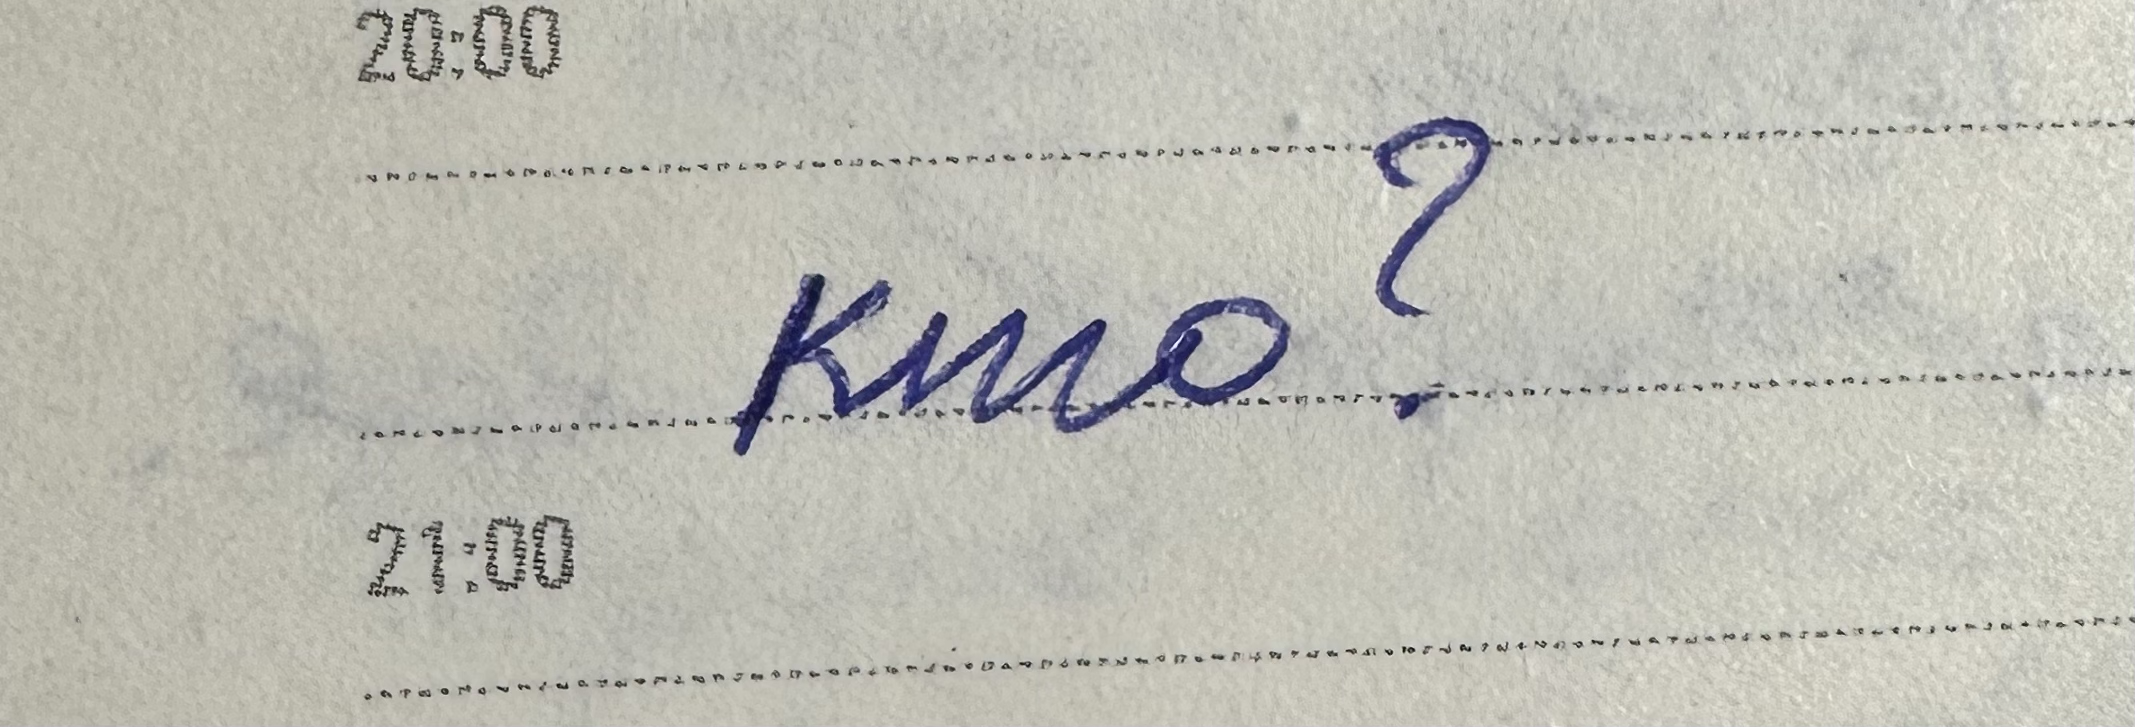 20:00
Кто?
21:00